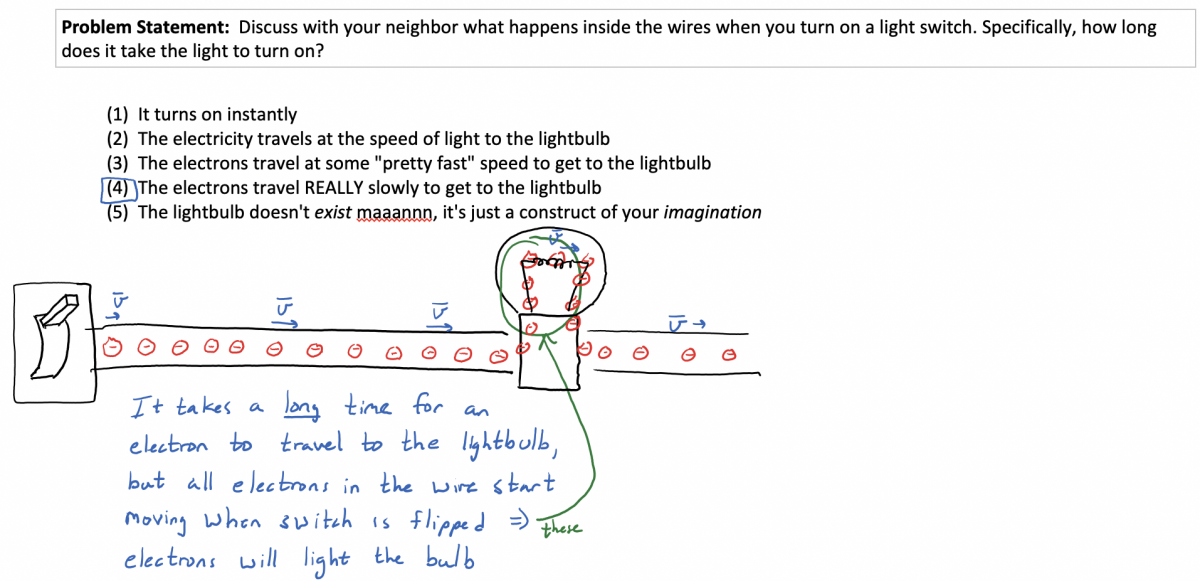 Problem Statement: Discuss with your neighbor what happens inside the wires when you turn on a light switch. Specifically, how long
does it take the light to turn on?
(1) It turns on instantly
(2) The electricity travels at the speed of light to the lightbulb
(3) The electrons travel at some "pretty fast" speed to get to the lightbulb
(4) The electrons travel REALLY slowly to get to the lightbulb
(5) The lightbulb doesn't exist maaannn, it's just a construct of your imagination
v
v
v
v
v
It takes a long time for an
electron to travel to the lightbulb,
but all electrons in the wire start
moving when switch is flipped ⇒ these
electrons will light the bulb